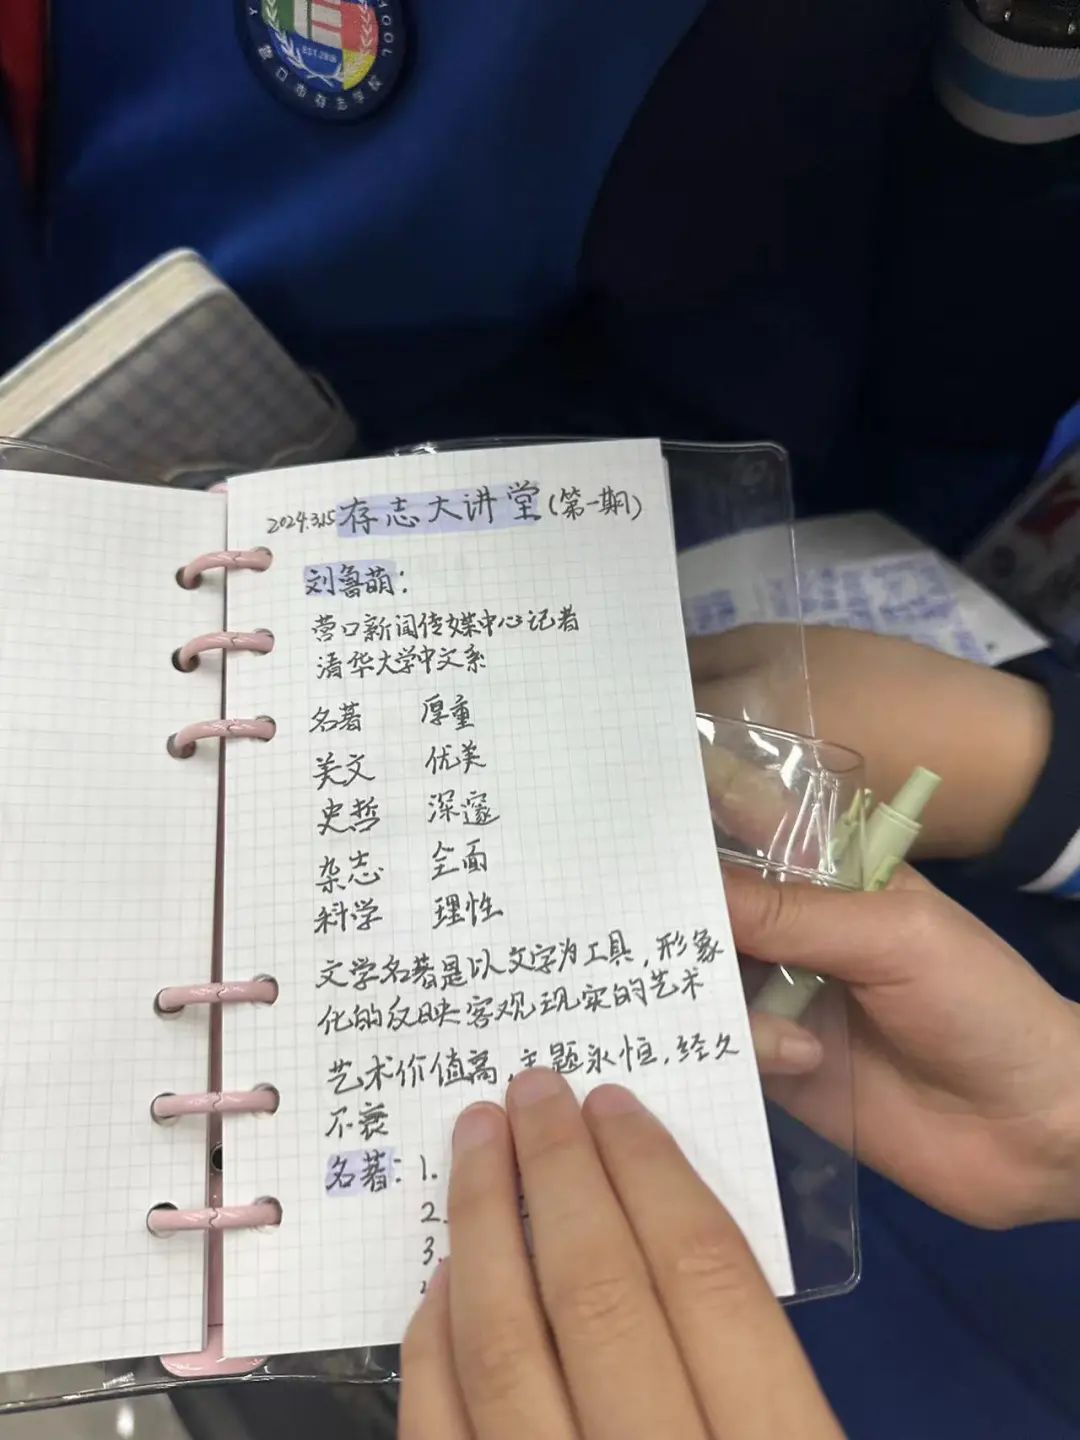 HOOL
EST.2016
营口市存志学校
2024.3.15 存志大讲堂(第一期)
刘鲁萌:
营口新闻传媒中心记者
清华大学中文系
名著 厚重
美文 优美
史哲 深邃
杂志 全面
科学 理性
文学名著是以文字为工具,形象
化的反映客观现实的艺术
艺术价值高,主题永恒,经久
不衰
名著: 1.
2.
3.